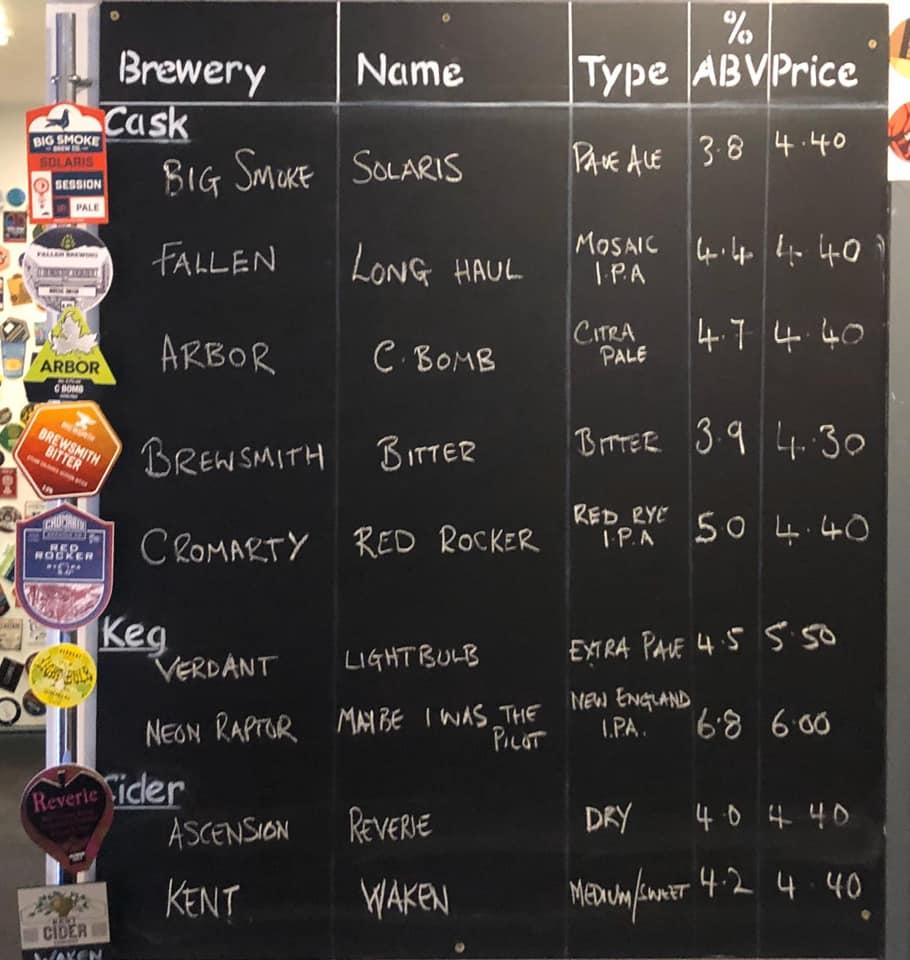 Brewery Name Type % ABV Price
Cask
BIG SMOKE SOLARIS PALE ALE 3.8 4.40
FALLEN LONG HAUL MOSAIC I.P.A 4.4 4.40
ARBOR C.BOMB CITRA PALE 4.7 4.40
BREWSMITH BITTER BITTER 3.9 4.30
CROMARTY RED ROCKER RED RYE I.P.A 5.0 4.40
Keg
VERDANT LIGHTBULB EXTRA PALE 4.5 5.50
NEON RAPTOR MAYBE I WAS THE PILOT NEW ENGLAND I.PA. 6.8 6.00
Cider
ASCENSION REVERIE DRY 4.0 4.40
KENT WAKEN MEDIUM/SWEET 4.2 4.40
BIG SMOKE
BREW CO.
SOLARIS
SESSION
PALE
FALLEN BREWING
ARBOR
C BOMB
BREWSMITH
BITTER
CROMARTY
RED
ROCKER
Reverie
KENT
CIDER
WAKEN